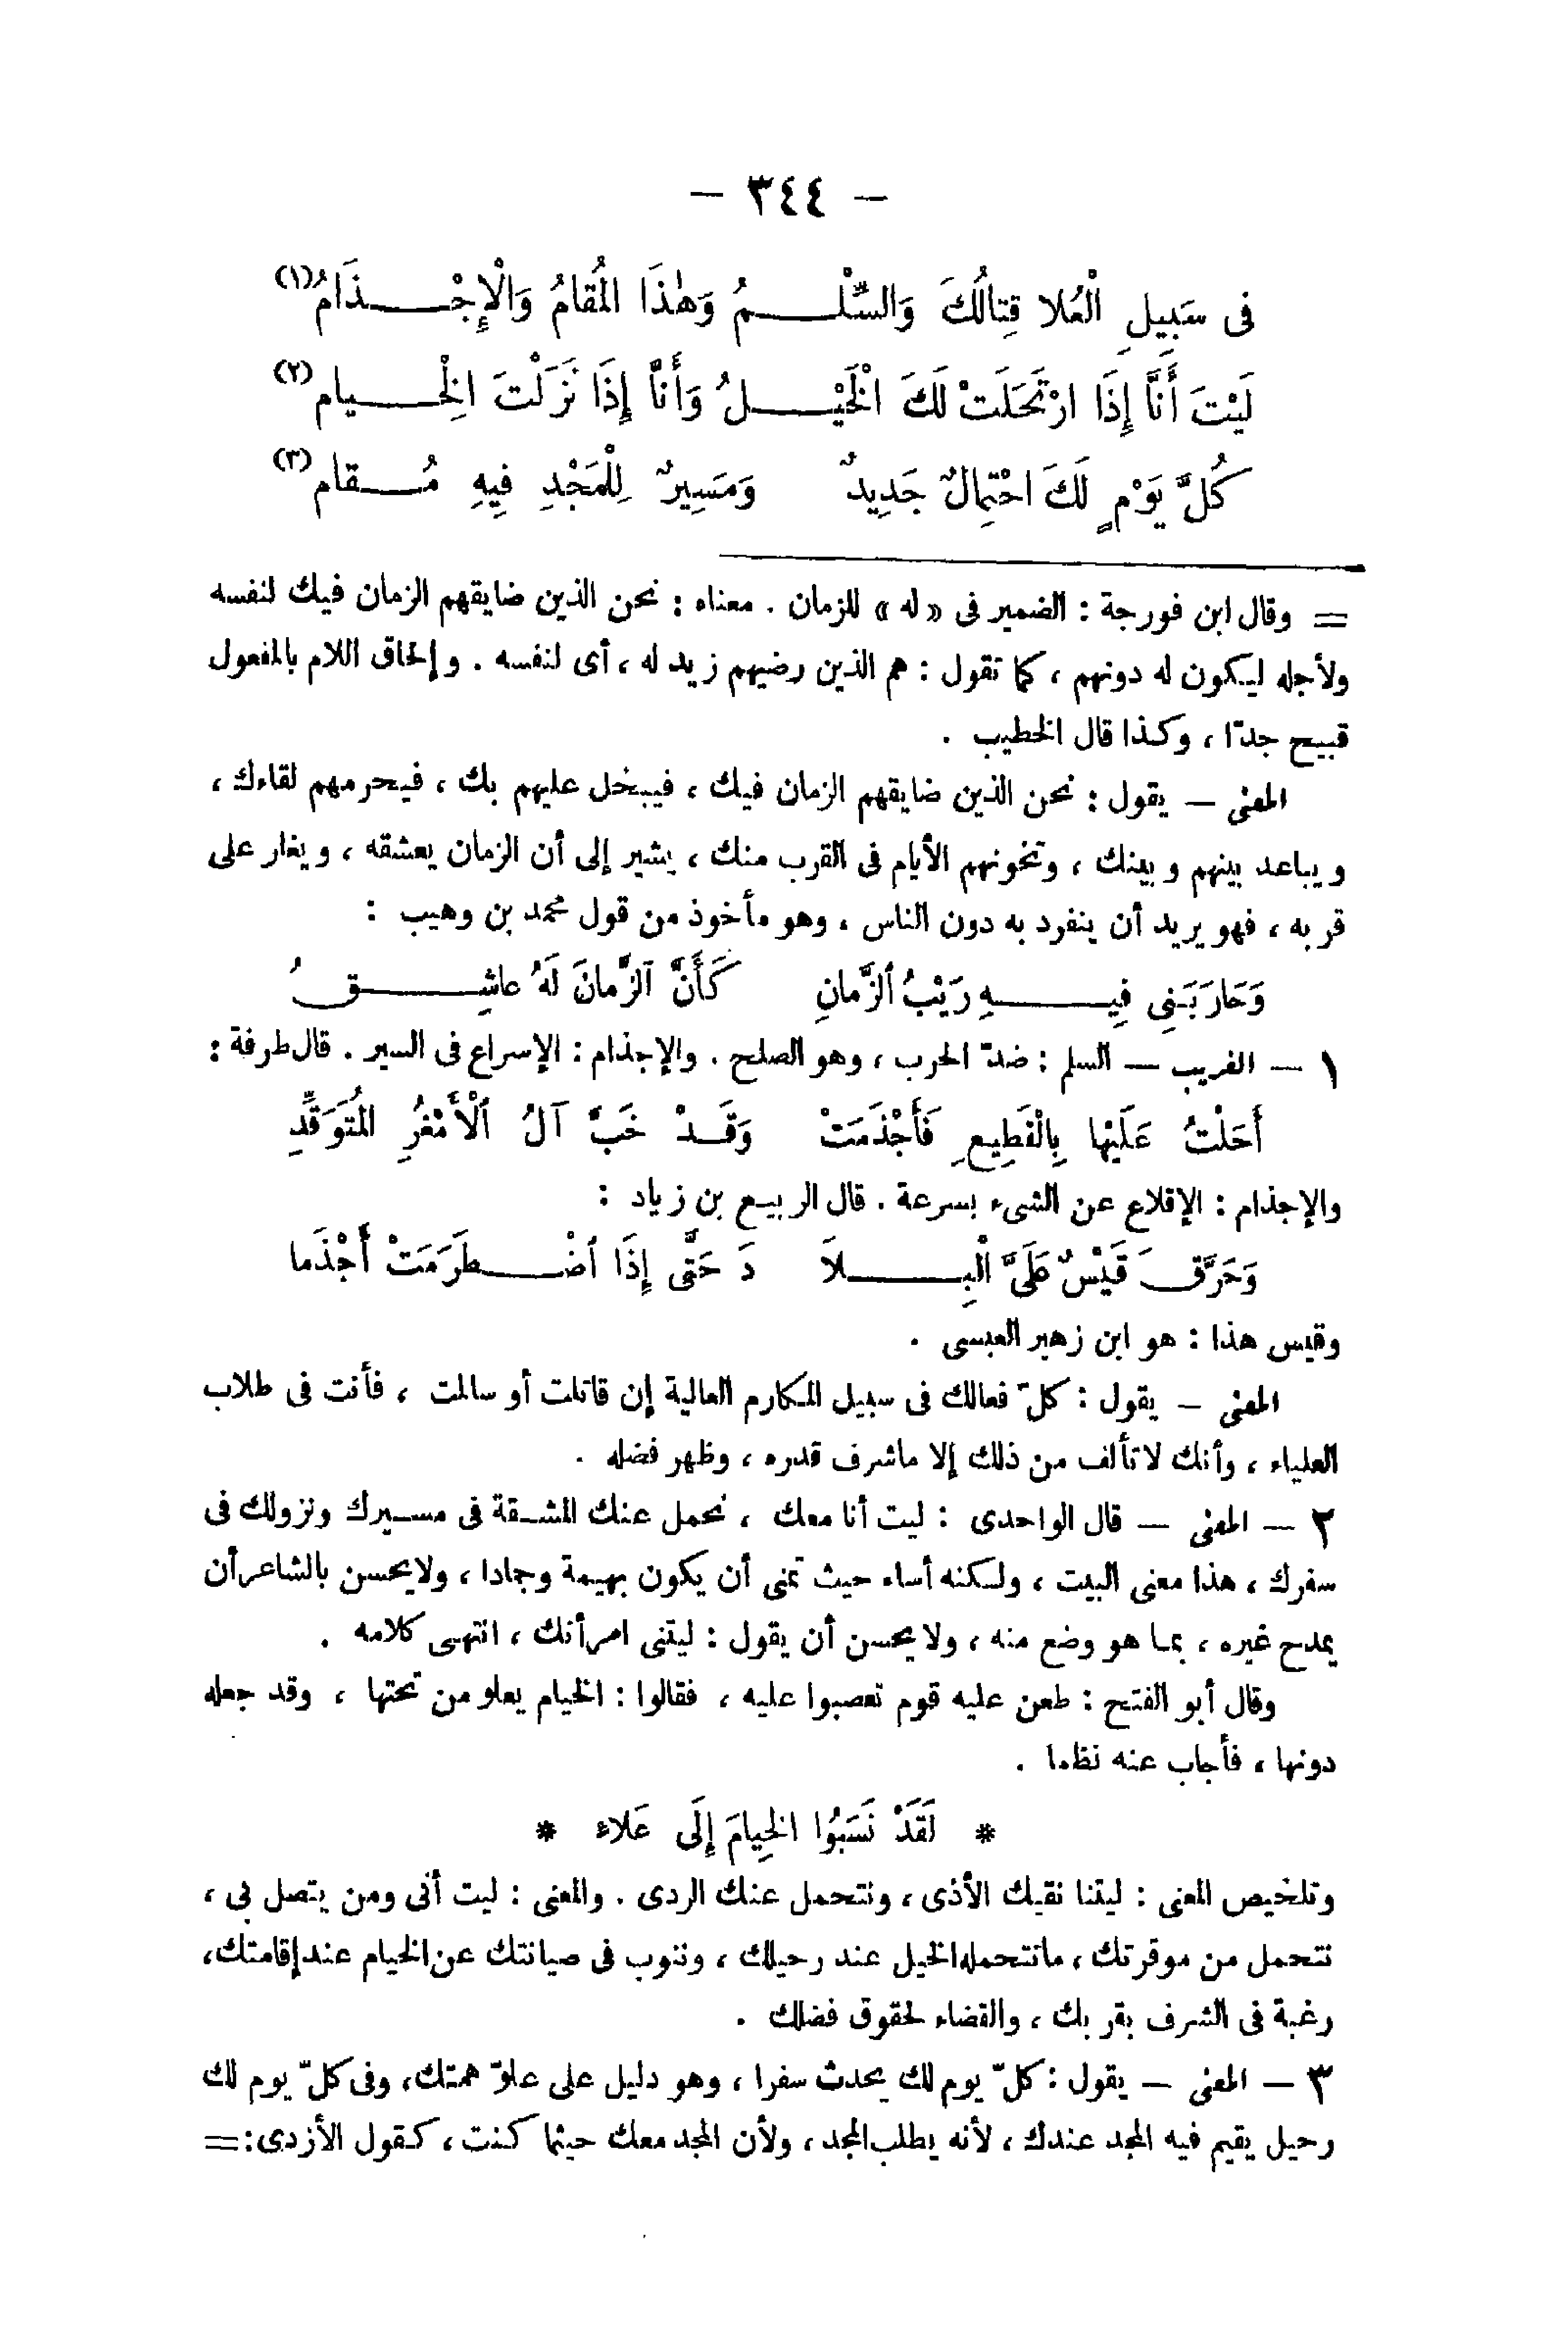 — ٣٤٤ —
فى سَبِيلِ الْعُلا قِتالُكَ وَالسِّلْـمُ وَهٰذَا الْمُقَامُ وَالْإِجْـذَامُ (١)
لَيْتَ أَنَّا إِذَا ارْتَحَلَتْ لَكَ الْخَيْـلُ وَأَنَّا إِذَا نَزَلْتَ الْخِـيام (٢)
كُلَّ يَوْمٍ لَكَ احْتِمَالٌ جَدِيدٌ وَمَسِيرٌ لِلْمَجْدِ فِيهِ مُـقام (٣)
= وقال ابن فورجة : الضمير فى « له » للزمان . معناه : نحن الذين ضايقهم الزمان فيك لنفسه
ولأجله ليكون له دونهم ، كما تقول : هم الذين رضيهم زيد له ، أى لنفسه . وإلحاق اللام بالمفعول
قبيح جدّا ، وكذا قال الخطيب .
المعنى — يقول : نحن الذين ضايقهم الزمان فيك ، فيبخل عليهم بك ، فيحرمهم لقاءك ،
ويباعد بينهم وبينك ، وتخونهم الأيام فى القرب منك ، يشير إلى أن الزمان يعشقه ، ويغار على
قربه ، فهو يريد أن ينفرد به دون الناس ، وهو مأخوذ من قول محمد بن وهيب :
وَحَارَبَنِى فِيـهِ رَيْبُ الزَّمانِ كَأَنَّ الزَّمانَ لَهُ عاشِـقُ
١ — الغريب — السلم : ضدّ الحرب ، وهو الصلح . والإجذام : الإسراع فى السير . قال طرفة :
أَحَلْتُ عَلَيْها بِالْقَطِيعِ فَأَجْذَمَتْ وَقَـدْ خَبَّ آلُ الْأَمْعُزِ الْمُتَوَقِّدِ
والإجذام : الإقلاع عن الشىء بسرعة . قال الربيع بن زياد :
وَحَرَّقَ قَيْسٌ عَلَىَّ الْبِـلاَ دَ حَتَّى إِذَا اضْـطَرَمَتْ أَجْذَما
وقيس هذا : هو ابن زهير العبسى .
المعنى — يقول : كلّ فعالك فى سبيل المكارم العالية إن قاتلت أو سالمت ، فأنت فى طلاب
العلياء ، وأنك لا تألف من ذلك إلا ماشرف قدره ، وظهر فضله .
٢ — المعنى — قال الواحدى : ليت أنا معك ، نحمل عنك المشقة فى مسيرك ونزولك فى
سفرك ، هذا معنى البيت ، ولكنه أساء حيث تمنى أن يكون بهيمة وجمادا ، ولايحسن بالشاعر أن
يمدح غيره ، بما هو وضع منه ، ولا يحسن أن يقول : ليتنى امرأتك ، انتهى كلامه .
وقال أبو الفتح : طعن عليه قوم تعصبوا عليه ، فقالوا : الخيام يعلو من تحتها ، وقد جعله
دونها ، فأجاب عنه نظما .
* لَقَدْ نَسَبُوا الْخِيامَ إِلَى عَلاءِ *
وتلخيص المعنى : ليتنا نقيك الأذى ، ونتحمل عنك الردى . والمعنى : ليت أنى ومن يتصل بى ،
نتحمل من موقرتك ، مانتحمله الخيل عند رحيلك ، وننوب فى صيانتك عن الخيام عند إقامتك،
رغبة فى الشرف بقربك ، والقضاء لحقوق فضلك .
٣ — المعنى — يقول : كلّ يوم لك يحدث سفرا ، وهو دليل على علوّ همتك، وفى كلّ يوم لك
رحيل يقيم فيه المجد عندك ، لأنه يطلب المجد ، ولأن المجد معك حيثما كنت ، كقول الأزدى: =